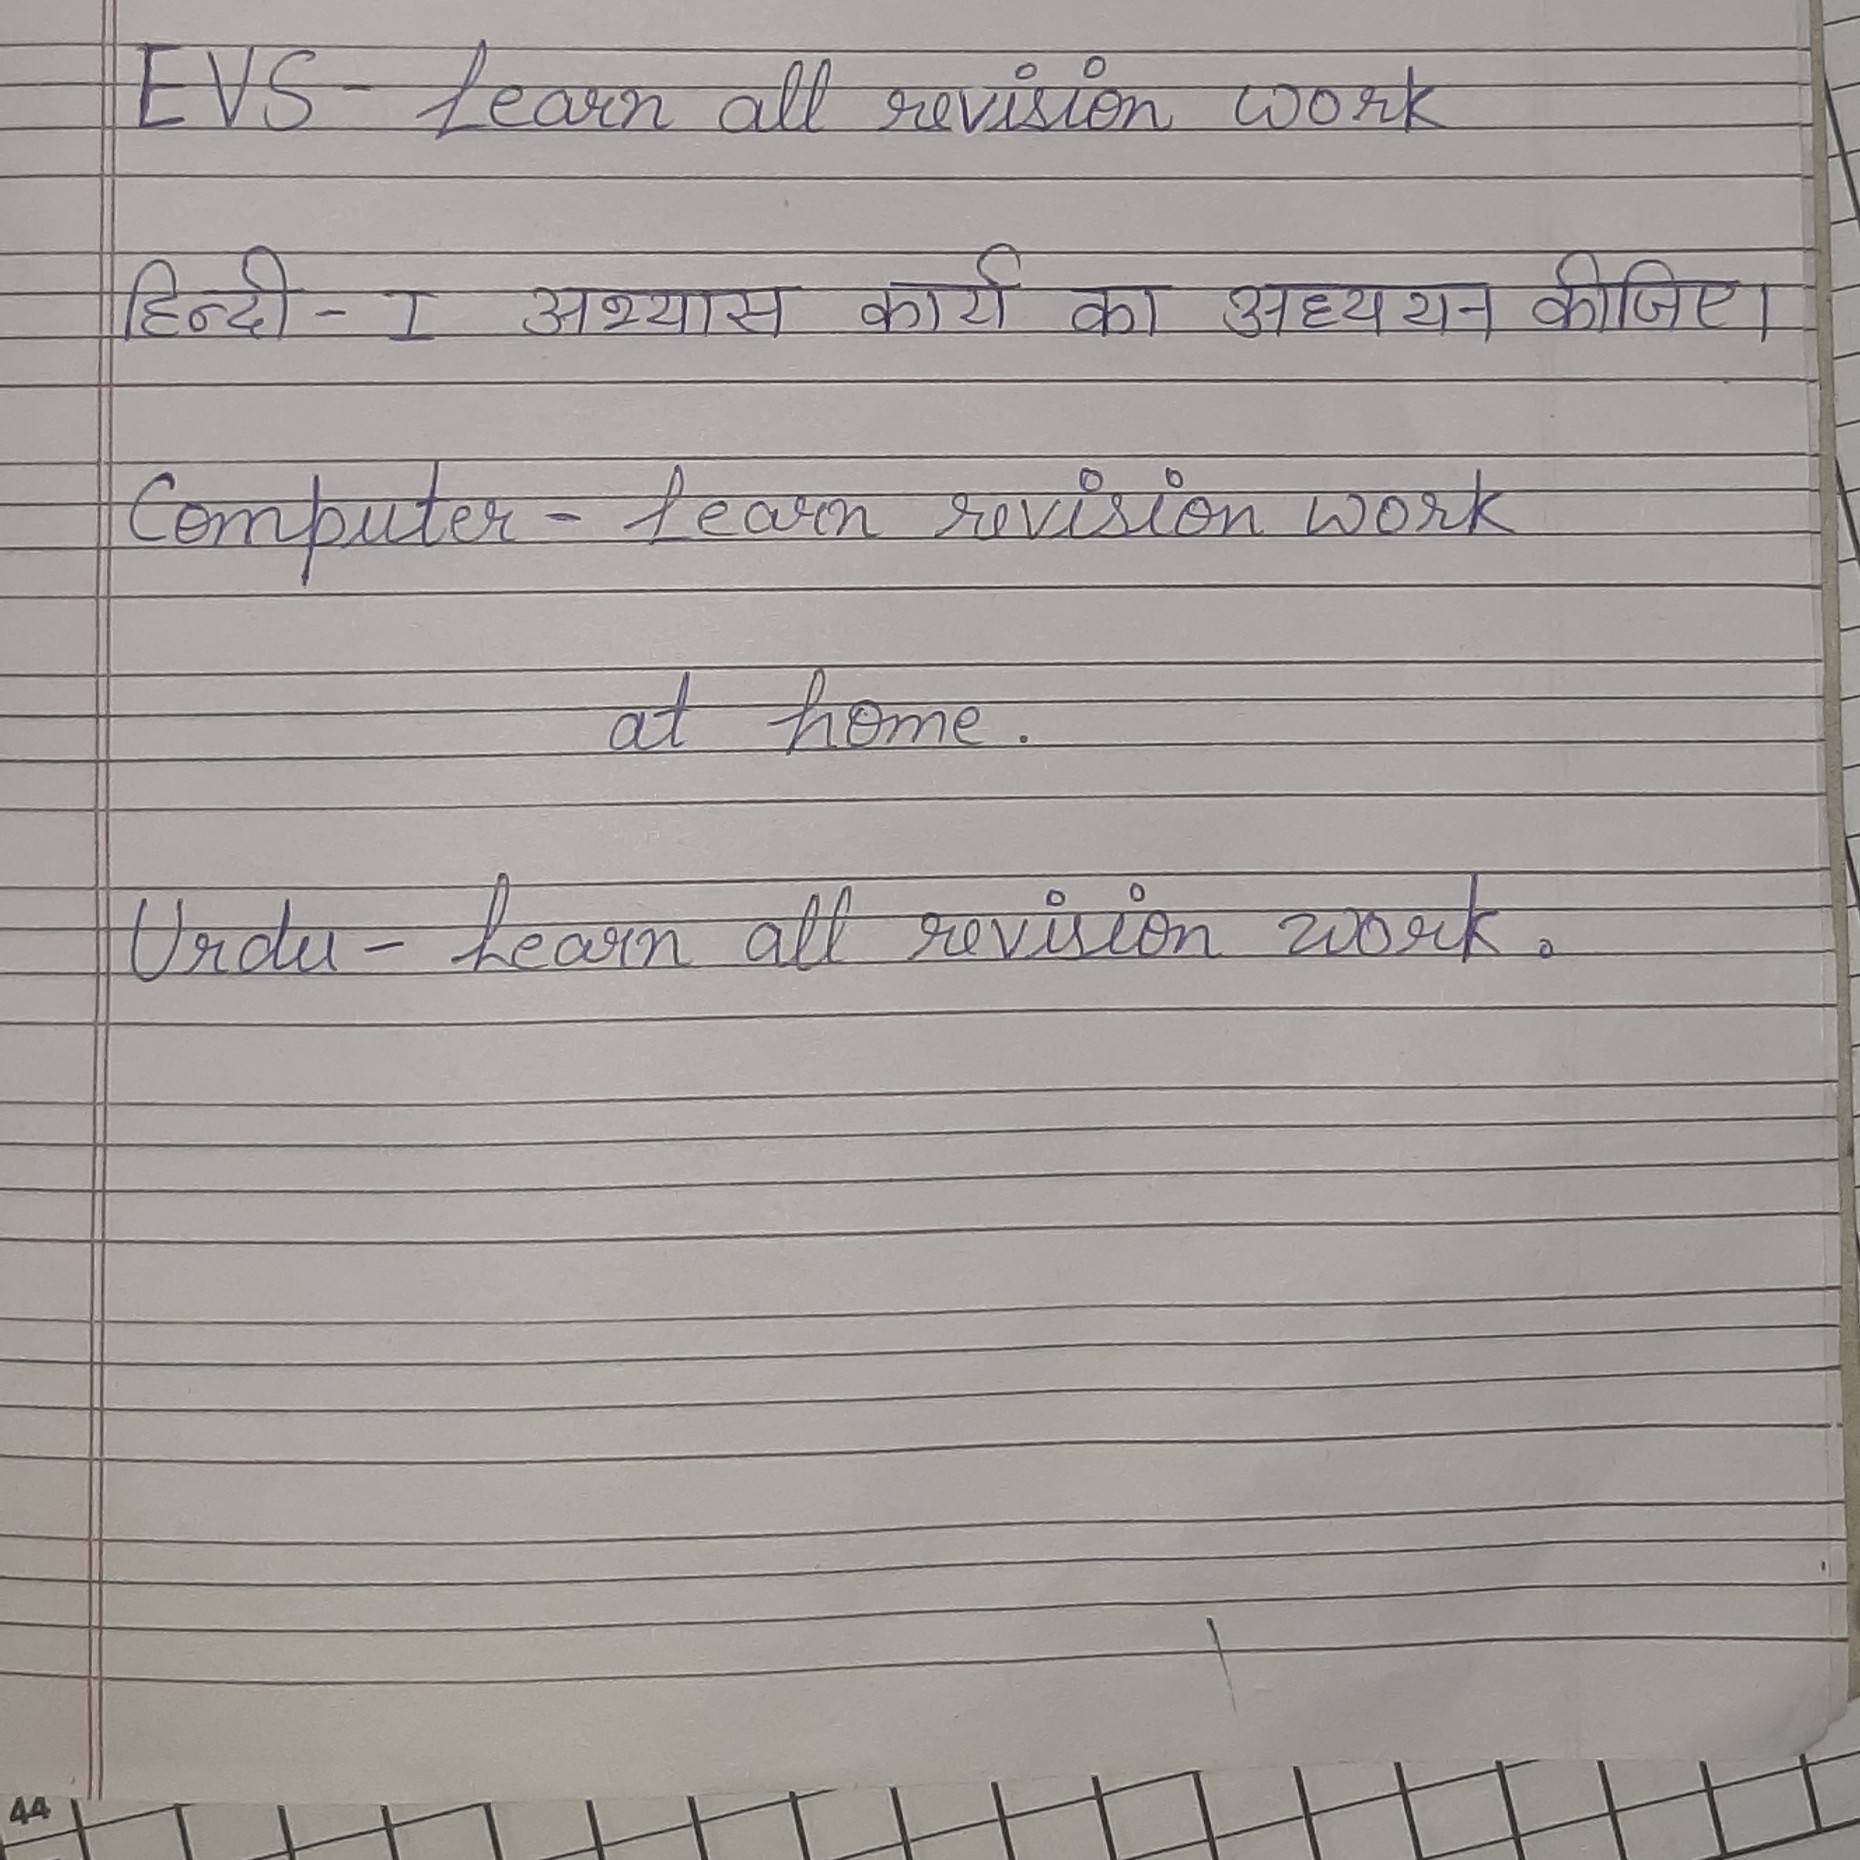 EVS - Learn all revision work
हिन्दी - I अभ्यास कार्य का अध्ययन कीजिए।
Computer - Learn revision work
at home.
Urdu - Learn all revision work.
44